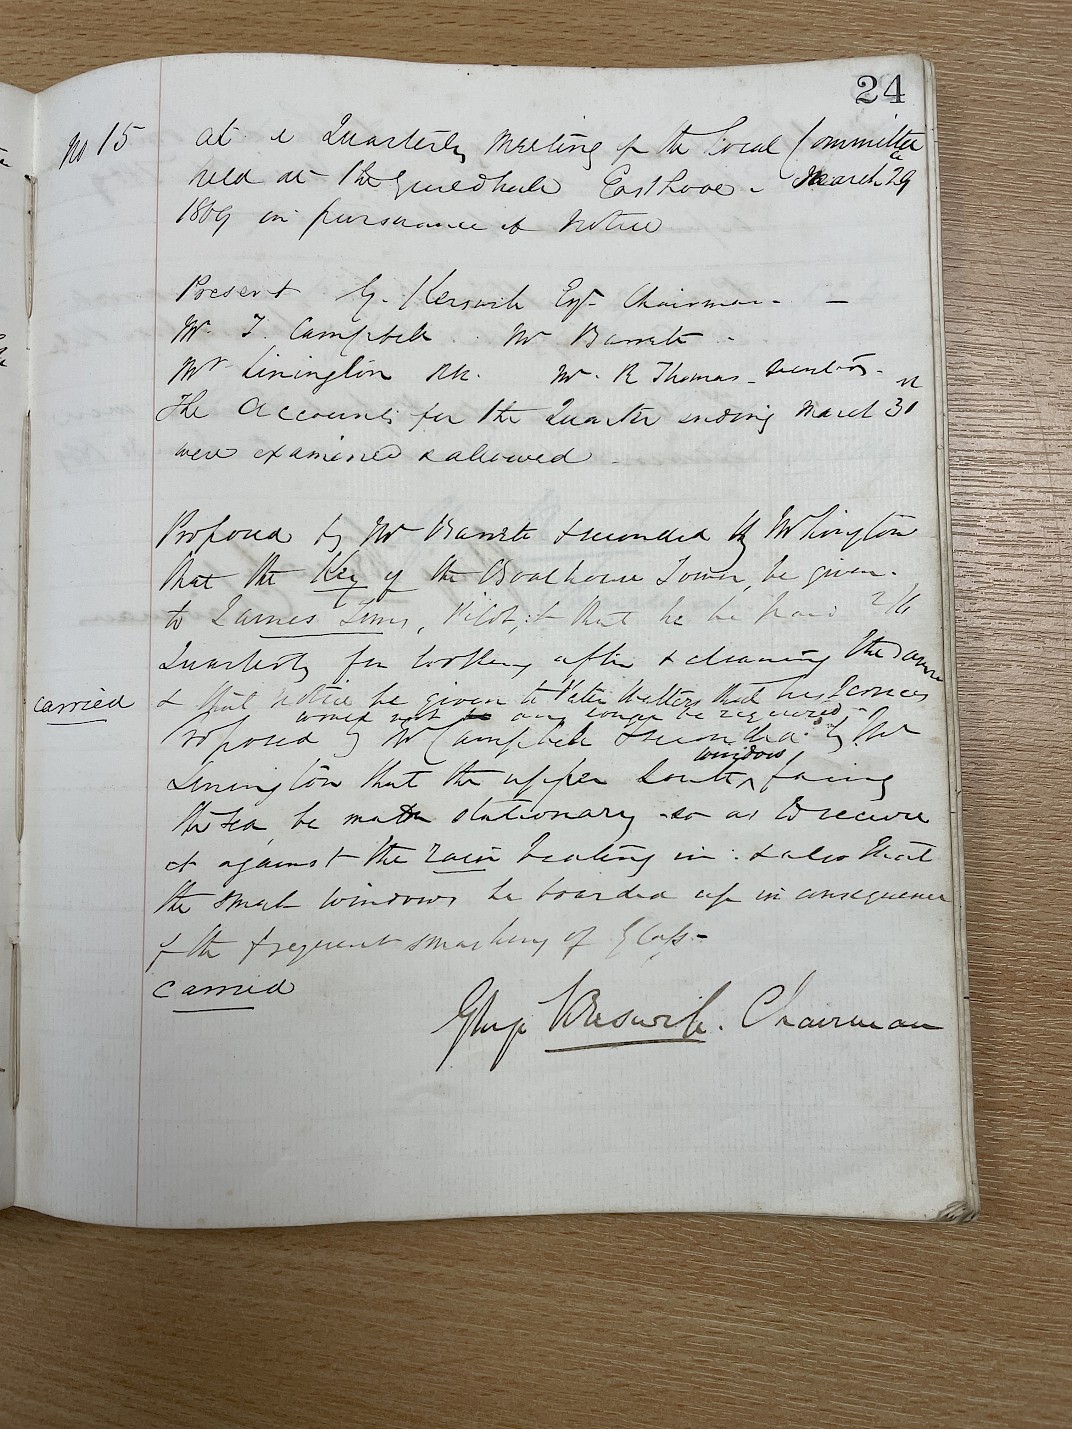 24
No 15
At a Quarterly Meeting of the Local Committee
held at the Guildhall East Looe - March 29
1869 in pursuance of Notice
Present G. Kerswill Esqr Chairman - -
Mr T Campbell . Mr Barrett -
Mr Linington RN. Mr. R Thomas -
The Accounts for the Quarter ending March 31
were examined & allowed -
Proposed by Mr Barrett & seconded by Mr Linington
That the Key of the Boathouse Tower, be given
to James Tims, Pilot, & that he be paid 2/6
Quarterly for looking after & cleaning the same
carried
& that notice be given to Peter that his services
would not be any longer be required -
Proposed by Mr Campbell & seconded by Mr
Linington that the upper South windows facing
the Sea be made stationary so as to secure
it against the rain beating in : & also that
the small windows be boarded up in consequence
of the frequent smashing of Glass -
carried
George Kerswill. Chairman